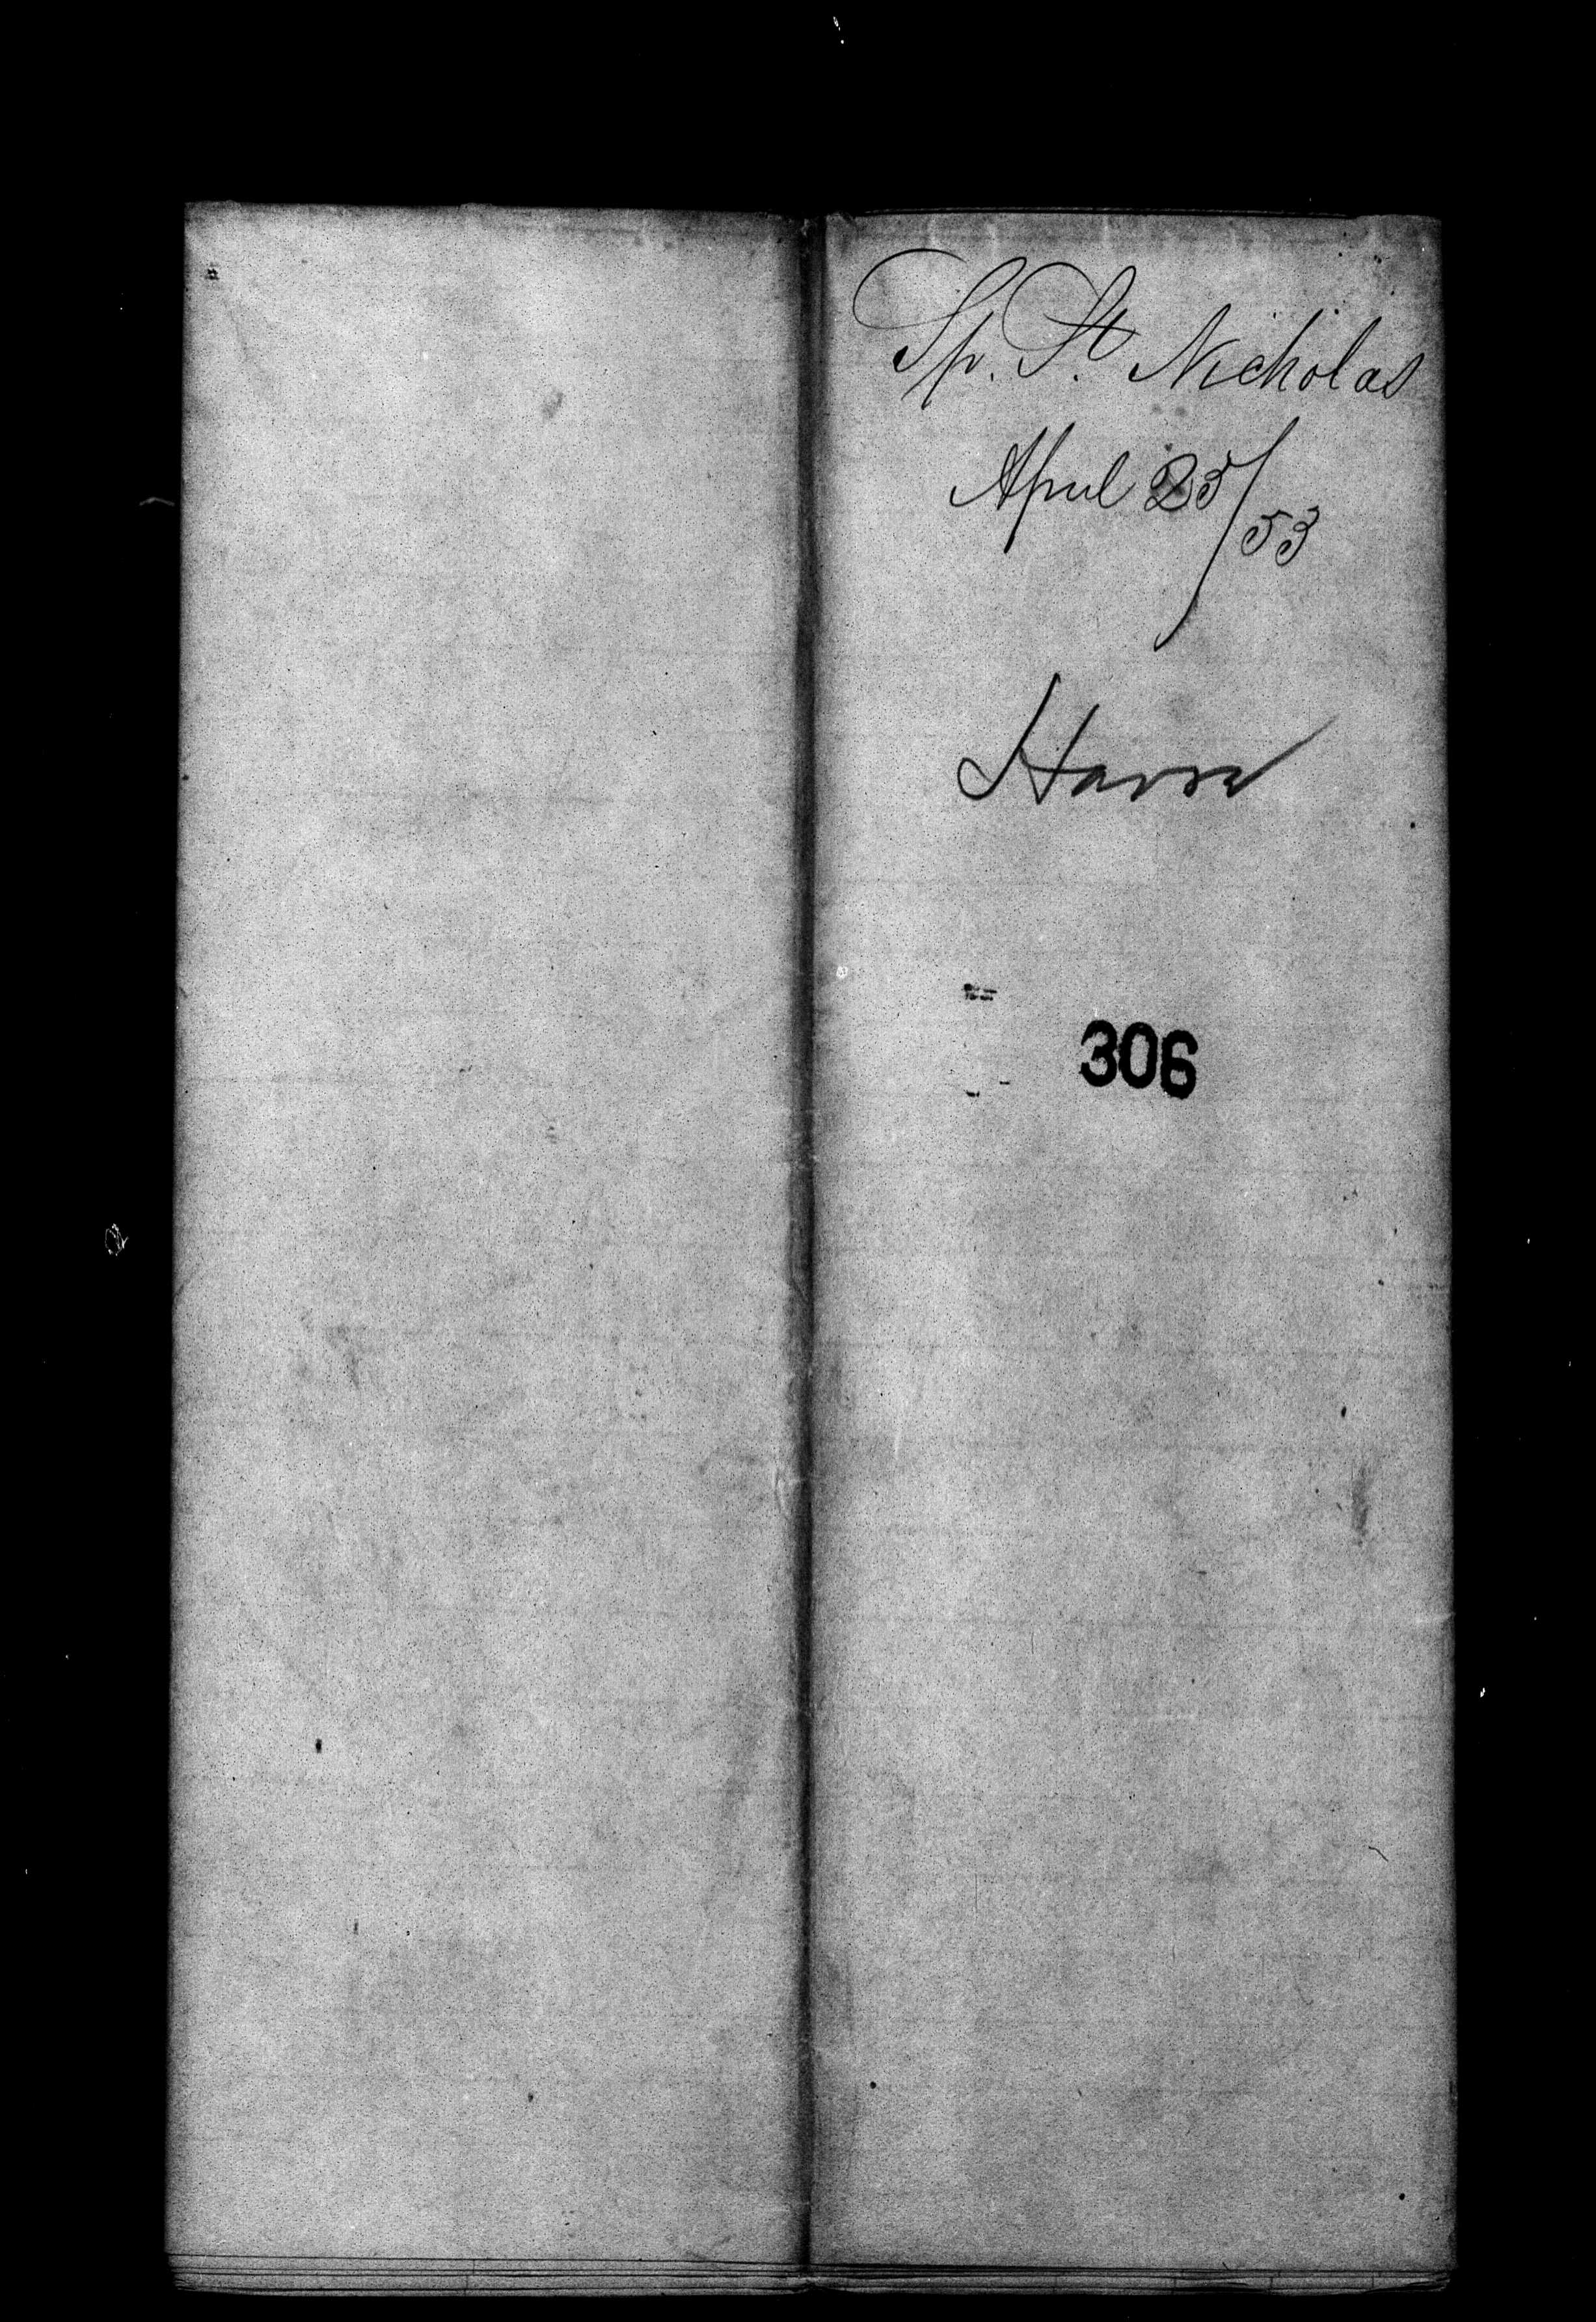 Sp. St. Nicholas
April 25/53
Havre
306